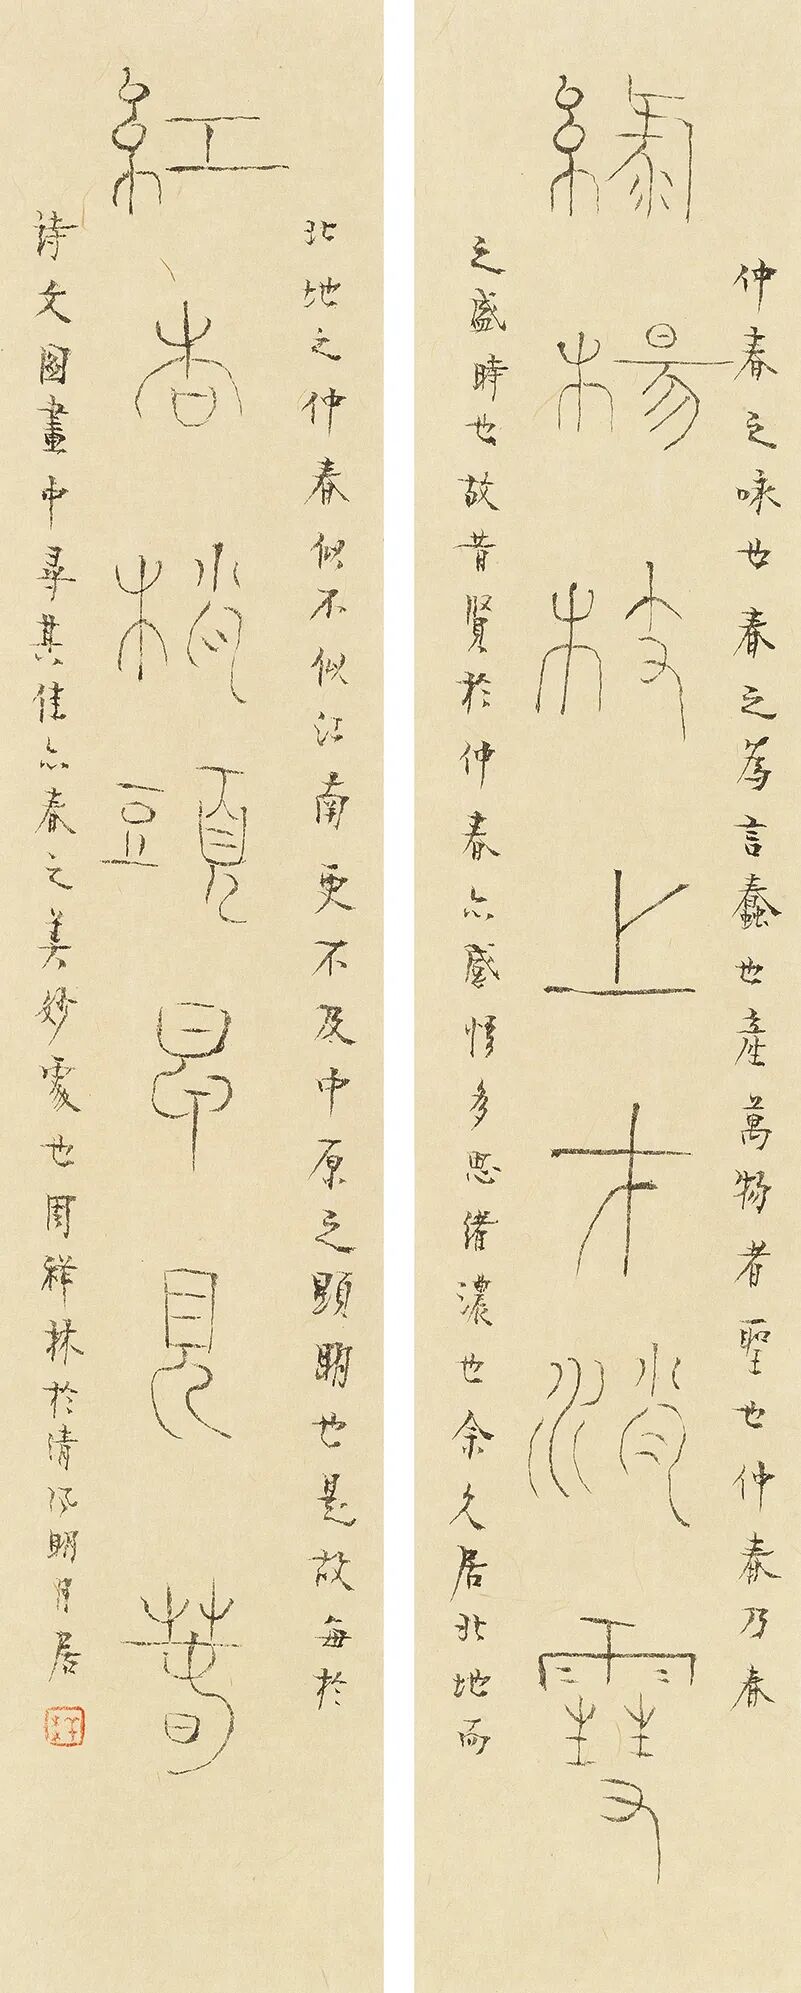 綠楊枝上才消雪
紅杏梢頭早見春
仲春之咏也春之為言蠢也產萬物者聖也仲春乃春
之盛時也故昔賢於仲春亦感情多思緒濃也余久居北地而
北地之仲春似不似江南更不及中原之顯明也是故每於
詩文圖畫中尋其佳亦春之美妙處也周祥林於清風明月居